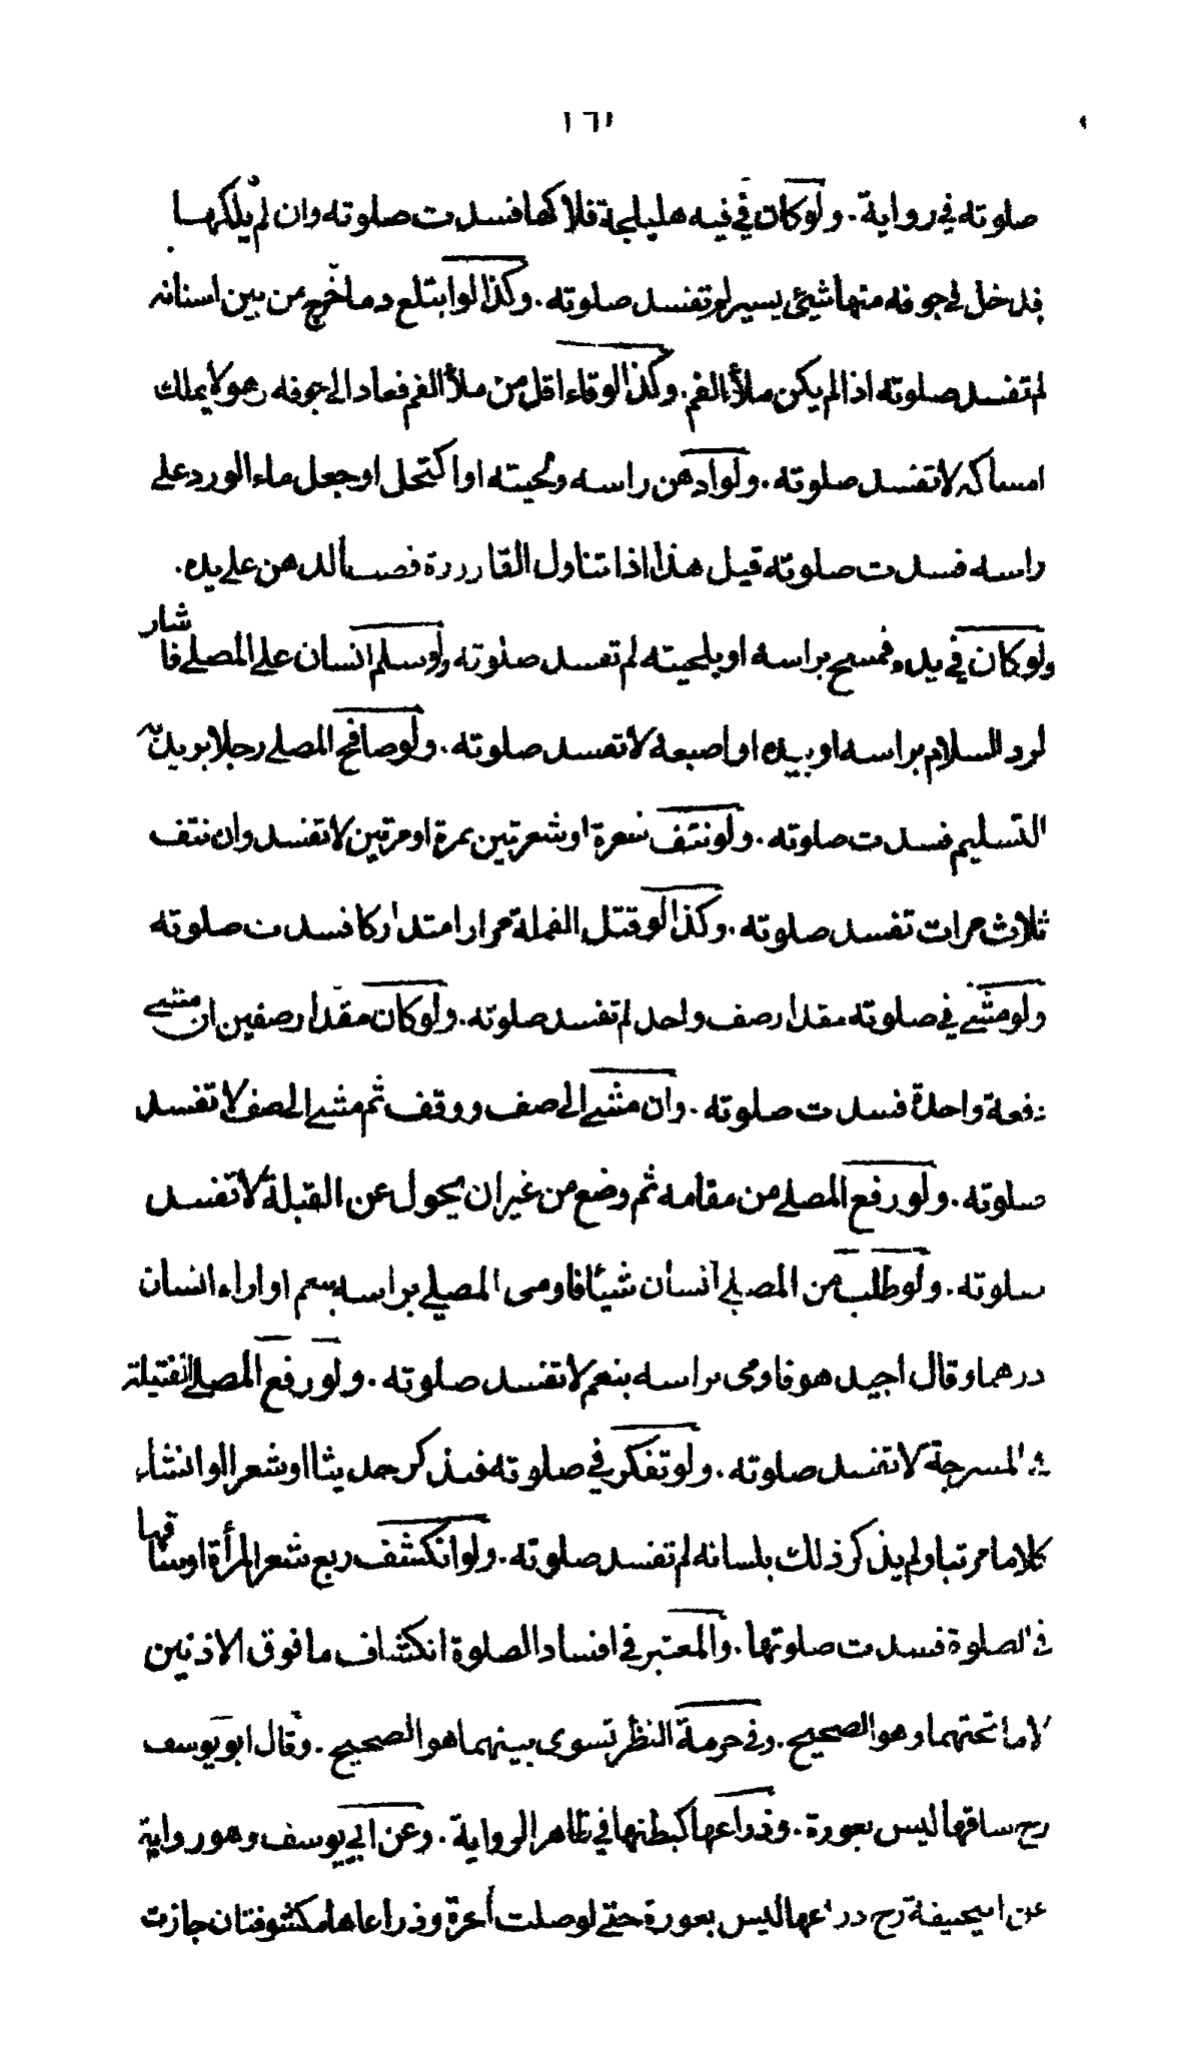 ١٦١
صلوته في رواية. ولو كان في فيه هليلجة فلاكها فسدت صلوته وان لم يلكها
فدخل في جوفه منها شيئ يسير لم تفسد صلوته. وكذا لو ابتلع دما خرج من بين اسنانه
لم تفسد صلوته اذا لم يكن ملأ الفم. وكذا لو قاء اقل من ملأ الفم فعاد الى جوفه وهو لا يملك
امساكه لا تفسد صلوته. ولو ادهن راسه ولحيته او اكتحل او جعل ماء الورد على
راسه فسدت صلوته قيل هذا اذا تناول القارورة فصب الدهن على يده.
ولو كان في يده فمسح براسه او بلحيته لم تفسد صلوته ولو سلم انسان على المصلى فاشار
لرد السلام براسه او بيده او اصبعه لا تفسد صلوته. ولو صافح المصلى رجلا يريد به
التسليم فسدت صلوته. ولو نتف شعرة او شعرتين بمرة او مرتين لا تفسد وان نتف
ثلاث مرات تفسد صلوته. وكذا لو قتل القملة مرارا متداركا فسدت صلوته
ولو مشى في صلوته مقدار صف واحد لم تفسد صلوته. ولو كان مقدار صفين ان مشى
دفعة واحدة فسدت صلوته. وان مشى الى صف ووقف ثم مشى الى صف لا تفسد
صلوته. ولو رفع المصلى من مقامه ثم وضع من غير ان يحول عن القبلة لا تفسد
صلوته. ولو طلب من المصلى انسان شيئا فاومى المصلى براسه بنعم او اراه انسان
درهما وقال اجيد هو فاومى براسه بنعم لا تفسد صلوته. ولو رفع المصلى الفتيلة
في المسرجة لا تفسد صلوته. ولو تفكر في صلوته فتذكر حديثا او شعرا او انشاء
كلاما مرتبا ولم يذكر ذلك بلسانه لم تفسد صلوته. ولو انكشف ربع شعر المرأة او ساقها
في الصلوة فسدت صلوتها. والمعتبر في افساد الصلوة انكشاف ما فوق الاذنين
لا ما تحتهما وهو الصحيح. وفي حرمة النظر تسوى بينهما هو الصحيح. وقال ابو يوسف
رح ساقها ليس بعورة. وذراعها كبطنها في ظاهر الرواية. وعن ابي يوسف وهو رواية
عن ابيحنيفة رح ذراعها ليس بعورة حتى لو صلت امرأة وذراعاها مكشوفتان جازت